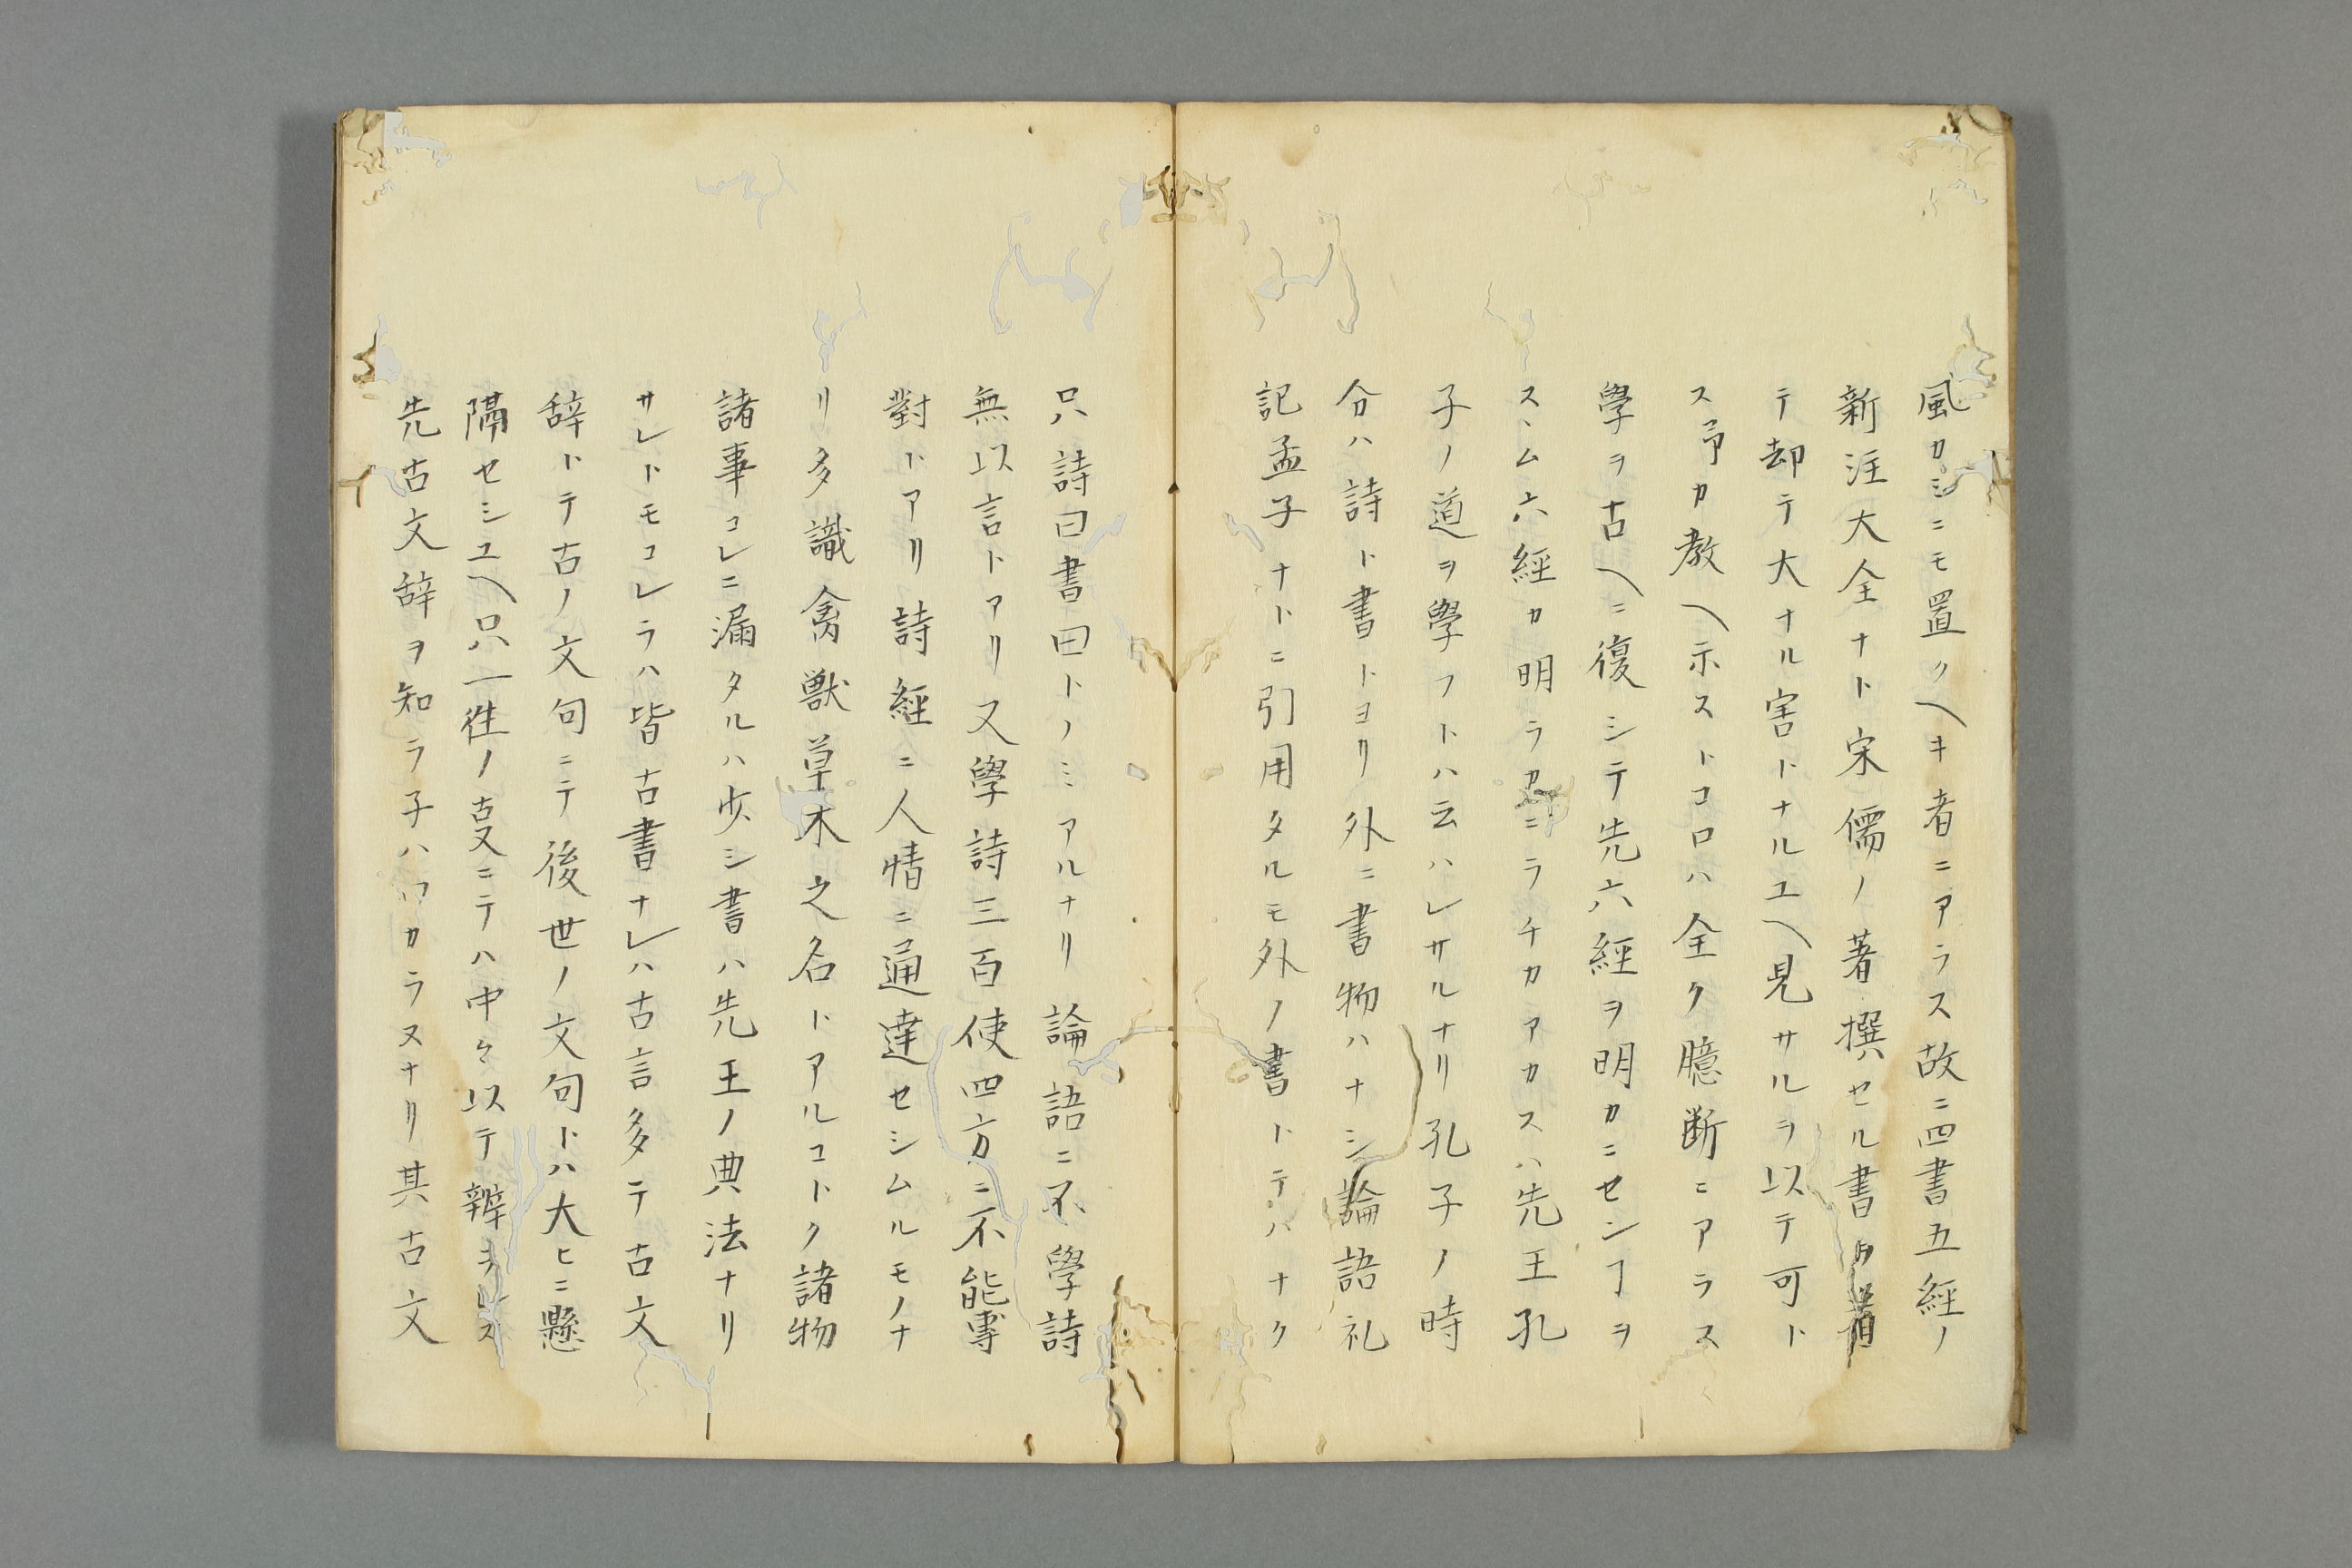 風カミニモ置クヘキ者ニアラス故ニ四書五經ノ
新注大全ナト宋儒ノ著撰セル書
テ却テ大ナル害トナルユヘ見サルヲ以テ可ト
ス予カ教ヘ示ストコロハ全ク臆断ニアラス
學ヲ古ヘニ復シテ先六經ヲ明カニセンヿヲ
スヽム六經カ明ラカニラチカアカスハ先王孔
子ノ道ヲ學フトハ云ハレサルナリ孔子ノ時
分ハ詩ト書トヨリ外ニ書物ハナシ論語礼
記孟子ナトニ引用タルモ外ノ書トテハナク
只詩曰書曰トノミアルナリ論語ニ不學詩
無以言トアリ又學詩三百使四方ニ不能專
對トアリ詩經ニ人情ニ通達セシムルモノナ
リ多識禽獣草木之名トアルコトク諸物
諸事コレニ漏タルハ少シ書ハ先王ノ典法ナリ
サレトモコレラハ皆古書ナレハ古言多テ古文
辞トテ古ノ文句ニテ後世ノ文句トハ大ヒニ懸
隔セシユヘ只一徃ノ叓ニテハ中々以テ辨
先古文辞ヲ知ラ子ハワカラヌナリ其古文